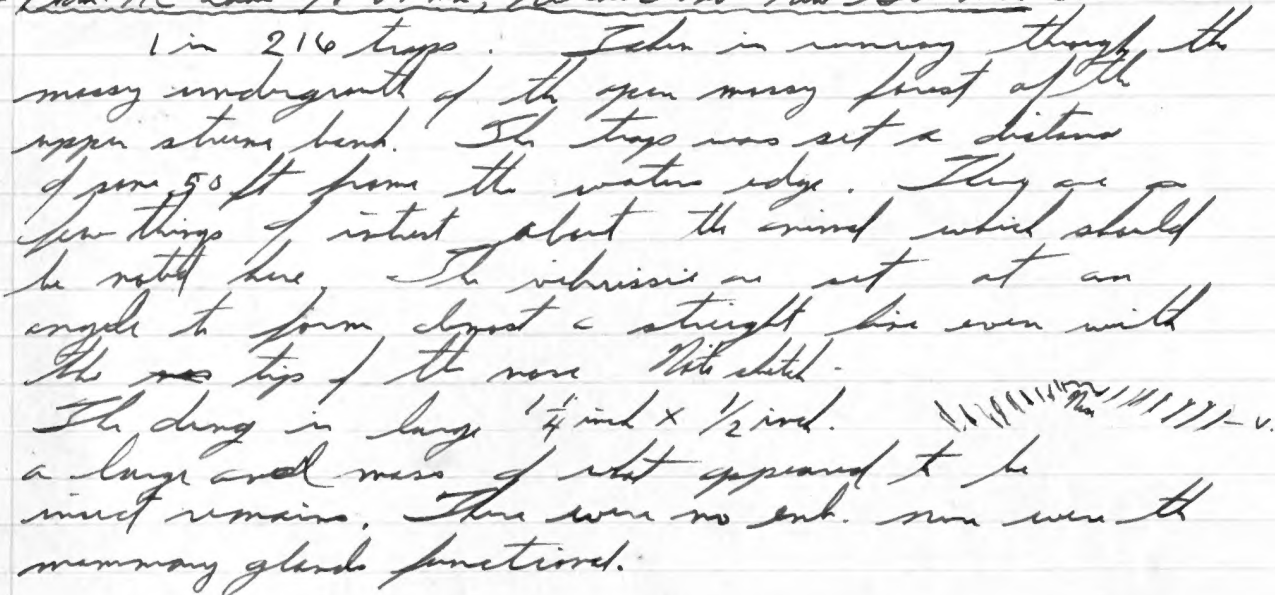 1 in 216 traps. Taken in runway through the
mossy undergrowth of the open mossy forest of the
upper stream bank. The traps was set a distance
of some 50 ft from the waters edge. They are a
few things of intrest about the animal which should
be noted here. The vibrissie are set at an
angele to form almost a straight line even with
the tip of the nose Note sketch.
The dung is large 1 1/4 inch x 1/2 inch. Nose v.
a large oval mass of what appeared to be
insect remains. There were no emb. nore were the
mammary glands functional.